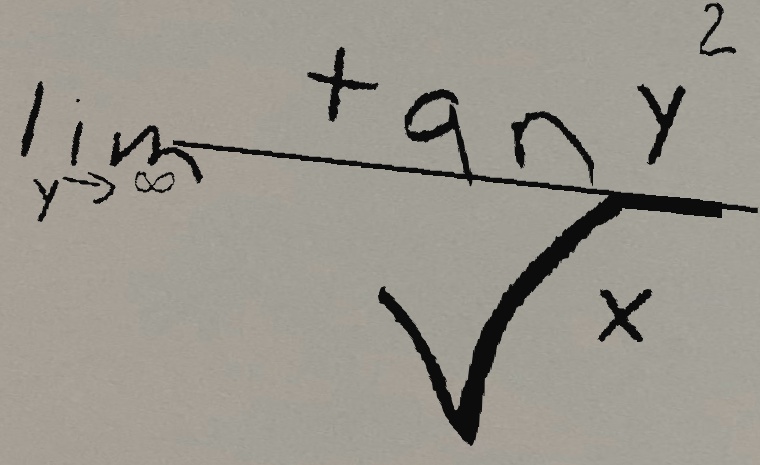 lim_{y→∞} \frac{tan y^2}{\sqrt{x}}